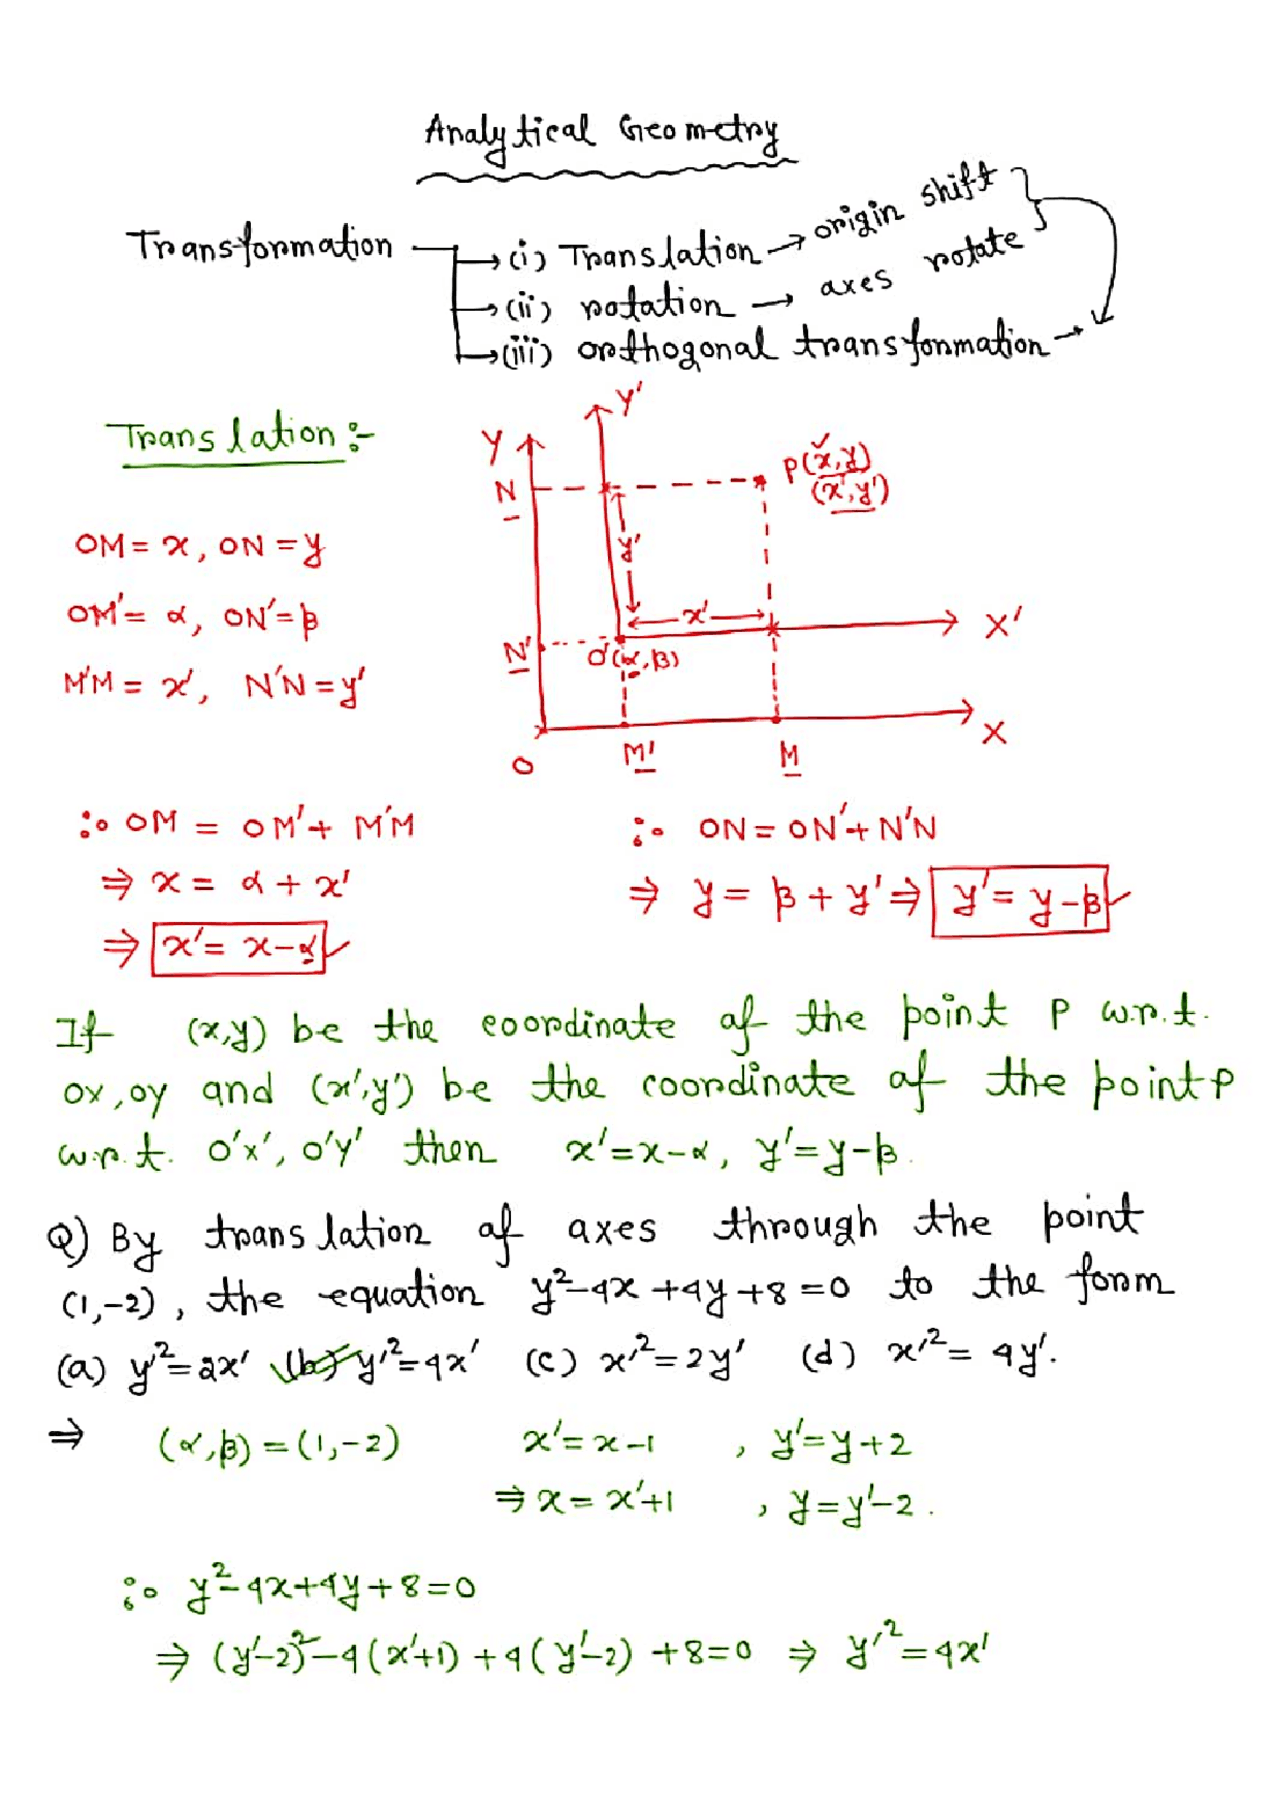 Analytical Geometry
Transformation → (i) Translation → origin shift
→ (ii) rotation → axes rotate
→ (iii) orthogonal transformation →
Translation :-
Y Y'
N P(x,y)
(x',y')
OM = x, ON = y
y'
OM' = α, ON' = β
x' X'
N' O'(α,β)
M'M = x', N'N = y'
X
O M' M
∴ OM = OM' + M'M ∴ ON = ON' + N'N
⇒ x = α + x' ⇒ y = β + y' ⇒ y' = y-β
⇒ x' = x-α
If (x,y) be the coordinate of the point P w.r.t.
ox, oy and (x',y') be the coordinate of the point P
w.r.t. o'x', o'y' then x'=x-α, y'=y-β.
Q) By translation of axes through the point
(1,-2), the equation y²-4x+4y+8=0 to the form
(a) y'²=2x' (b) y'²=4x' (c) x'²=2y' (d) x'²=4y'.
⇒ (α,β)=(1,-2) x'=x-1 , y'=y+2
⇒ x=x'+1 , y=y'-2.
∴ y²-4x+4y+8=0
⇒ (y'-2)²-4(x'+1)+4(y'-2)+8=0 ⇒ y'²=4x'